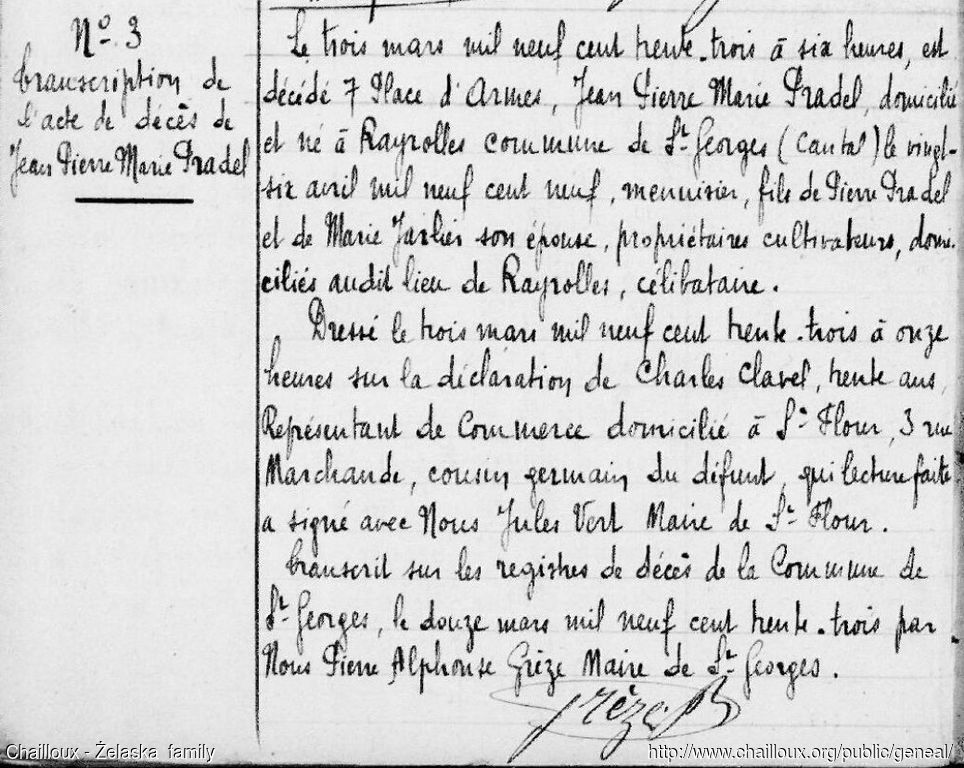 Nº 3
transcription de
l'acte de décès de
Jean Pierre Marie Pradel
Le trois mars mil neuf cent trente-trois à six heures, est
décédé 7 Place d'Armes, Jean Pierre Marie Pradel, domicilié
et né à Rayrolles commune de St Georges (Cantal) le vingt-
six avril mil neuf cent neuf, menuisier, fils de Pierre Pradel
et de Marie Jarlier son épouse, propriétaires cultivateurs, domi-
ciliés audit lieu de Rayrolles, célibataire.
Dressé le trois mars mil neuf cent trente-trois à onze
heures sur la déclaration de Charles Clavel, trente ans,
Représentant de Commerce domicilié à St Flour, 3 rue
Marchande, cousin germain du défunt, qui lecture faite
a signé avec Nous Jules Vert Maire de St Flour.
transcrit sur les registres de décès de la Commune de
St Georges, le douze mars mil neuf cent trente-trois par
Nous Pierre Alphonse Grèze Maire de St Georges.
Grèze
Chailloux - Żelaska family
http://www.chailloux.org/public/geneal/